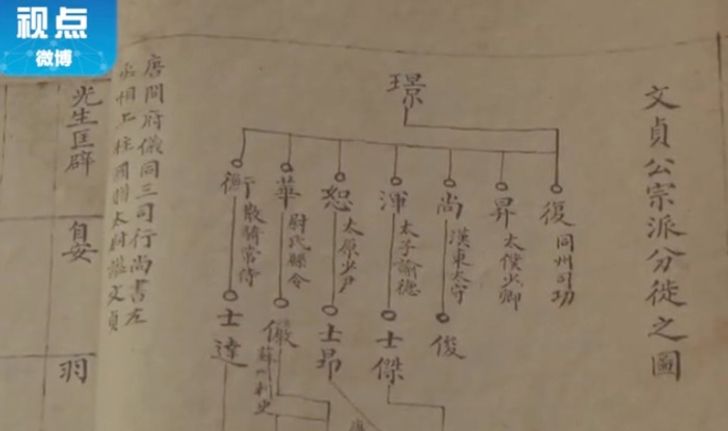 视点
微博
文貞公宗派分徙之圖
璟
復
同州司功
昇
太僕少卿
尚
漢東太守
渾
太子諭德
恕
太原少尹
華
尉氏縣令
衡
散騎常侍
俊
士傑
士昂
蘇州刺史
士達
唐開府儀同三司行尚書左
丞相上柱國贈太尉謚文貞
光生匡辟
自安
羽